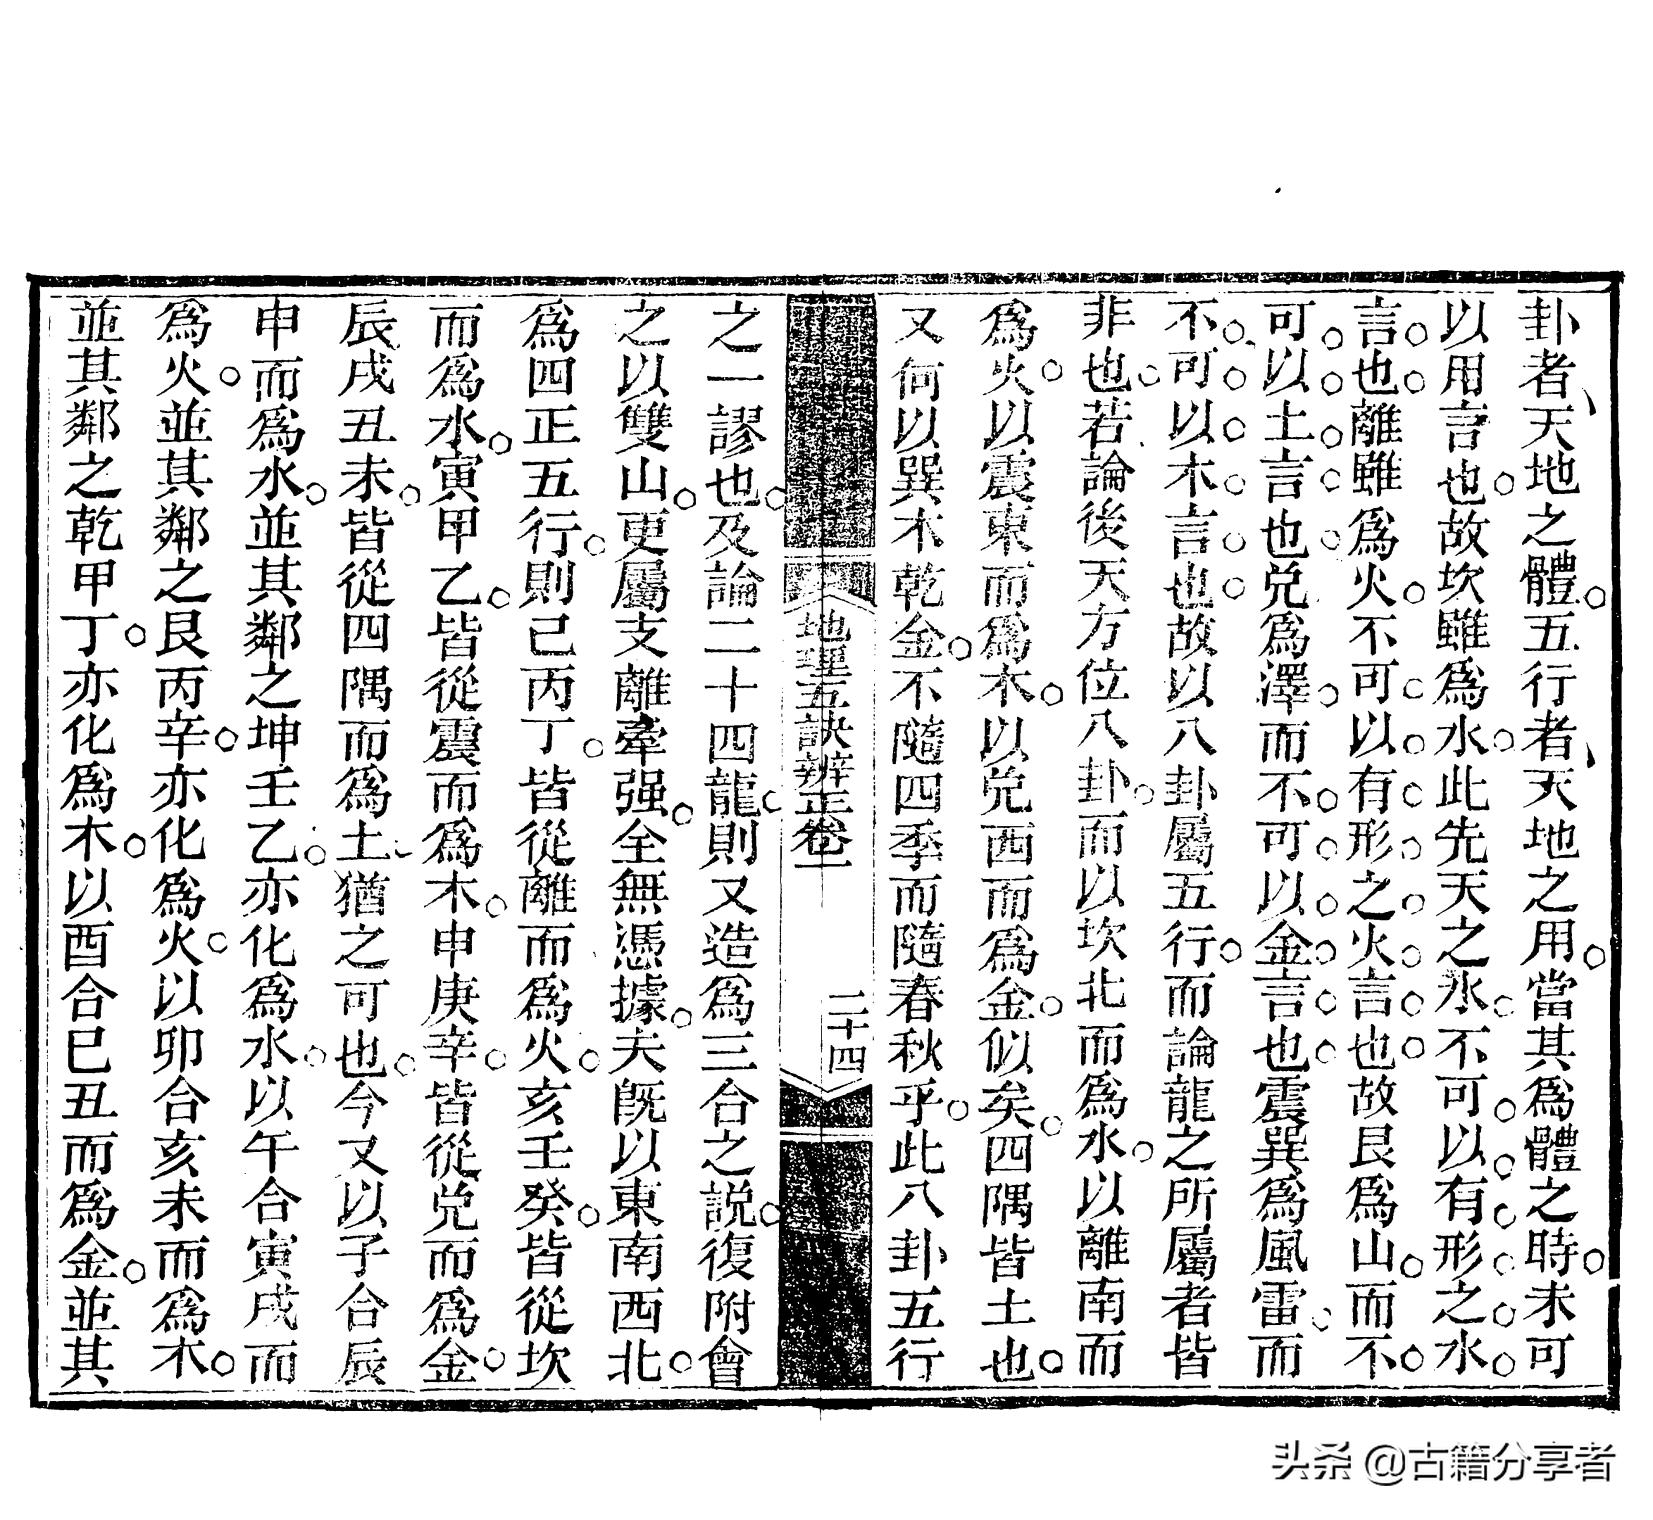 卦者天地之體五行者天地之用當其爲體之時未可
以用言也故坎雖爲水此先天之水不可以有形之水
言也離雖爲火不可以有形之火言也故艮爲山而不
可以土言也兌爲澤而不可以金言也震巽爲風雷而
不可以木言也故以八卦屬五行而論龍之所屬者皆
非也若論後天方位八卦而以坎北而爲水以離南而
爲火以震東而爲木以兌西而爲金似矣四隅皆土也
又何以巽木乾金不隨四季而隨春秋乎此八卦五行
地理五訣辨正卷一
二十四
之一謬也及論二十四龍則又造爲三合之説復附會
之以雙山更屬支離牽强全無憑據夫既以東南西北
爲四正五行則己丙丁皆從離而爲火亥壬癸皆從坎
而爲水寅甲乙皆從震而爲木申庚辛皆從兌而爲金
辰戌丑未皆從四隅而爲土猶之可也今又以子合辰
申而爲水並其鄰之坤壬乙亦化爲水以午合寅戌而
爲火並其鄰之艮丙辛亦化爲火以卯合亥未而爲木
並其鄰之乾甲丁亦化爲木以酉合巳丑而爲金並其
头条 @古籍分享者